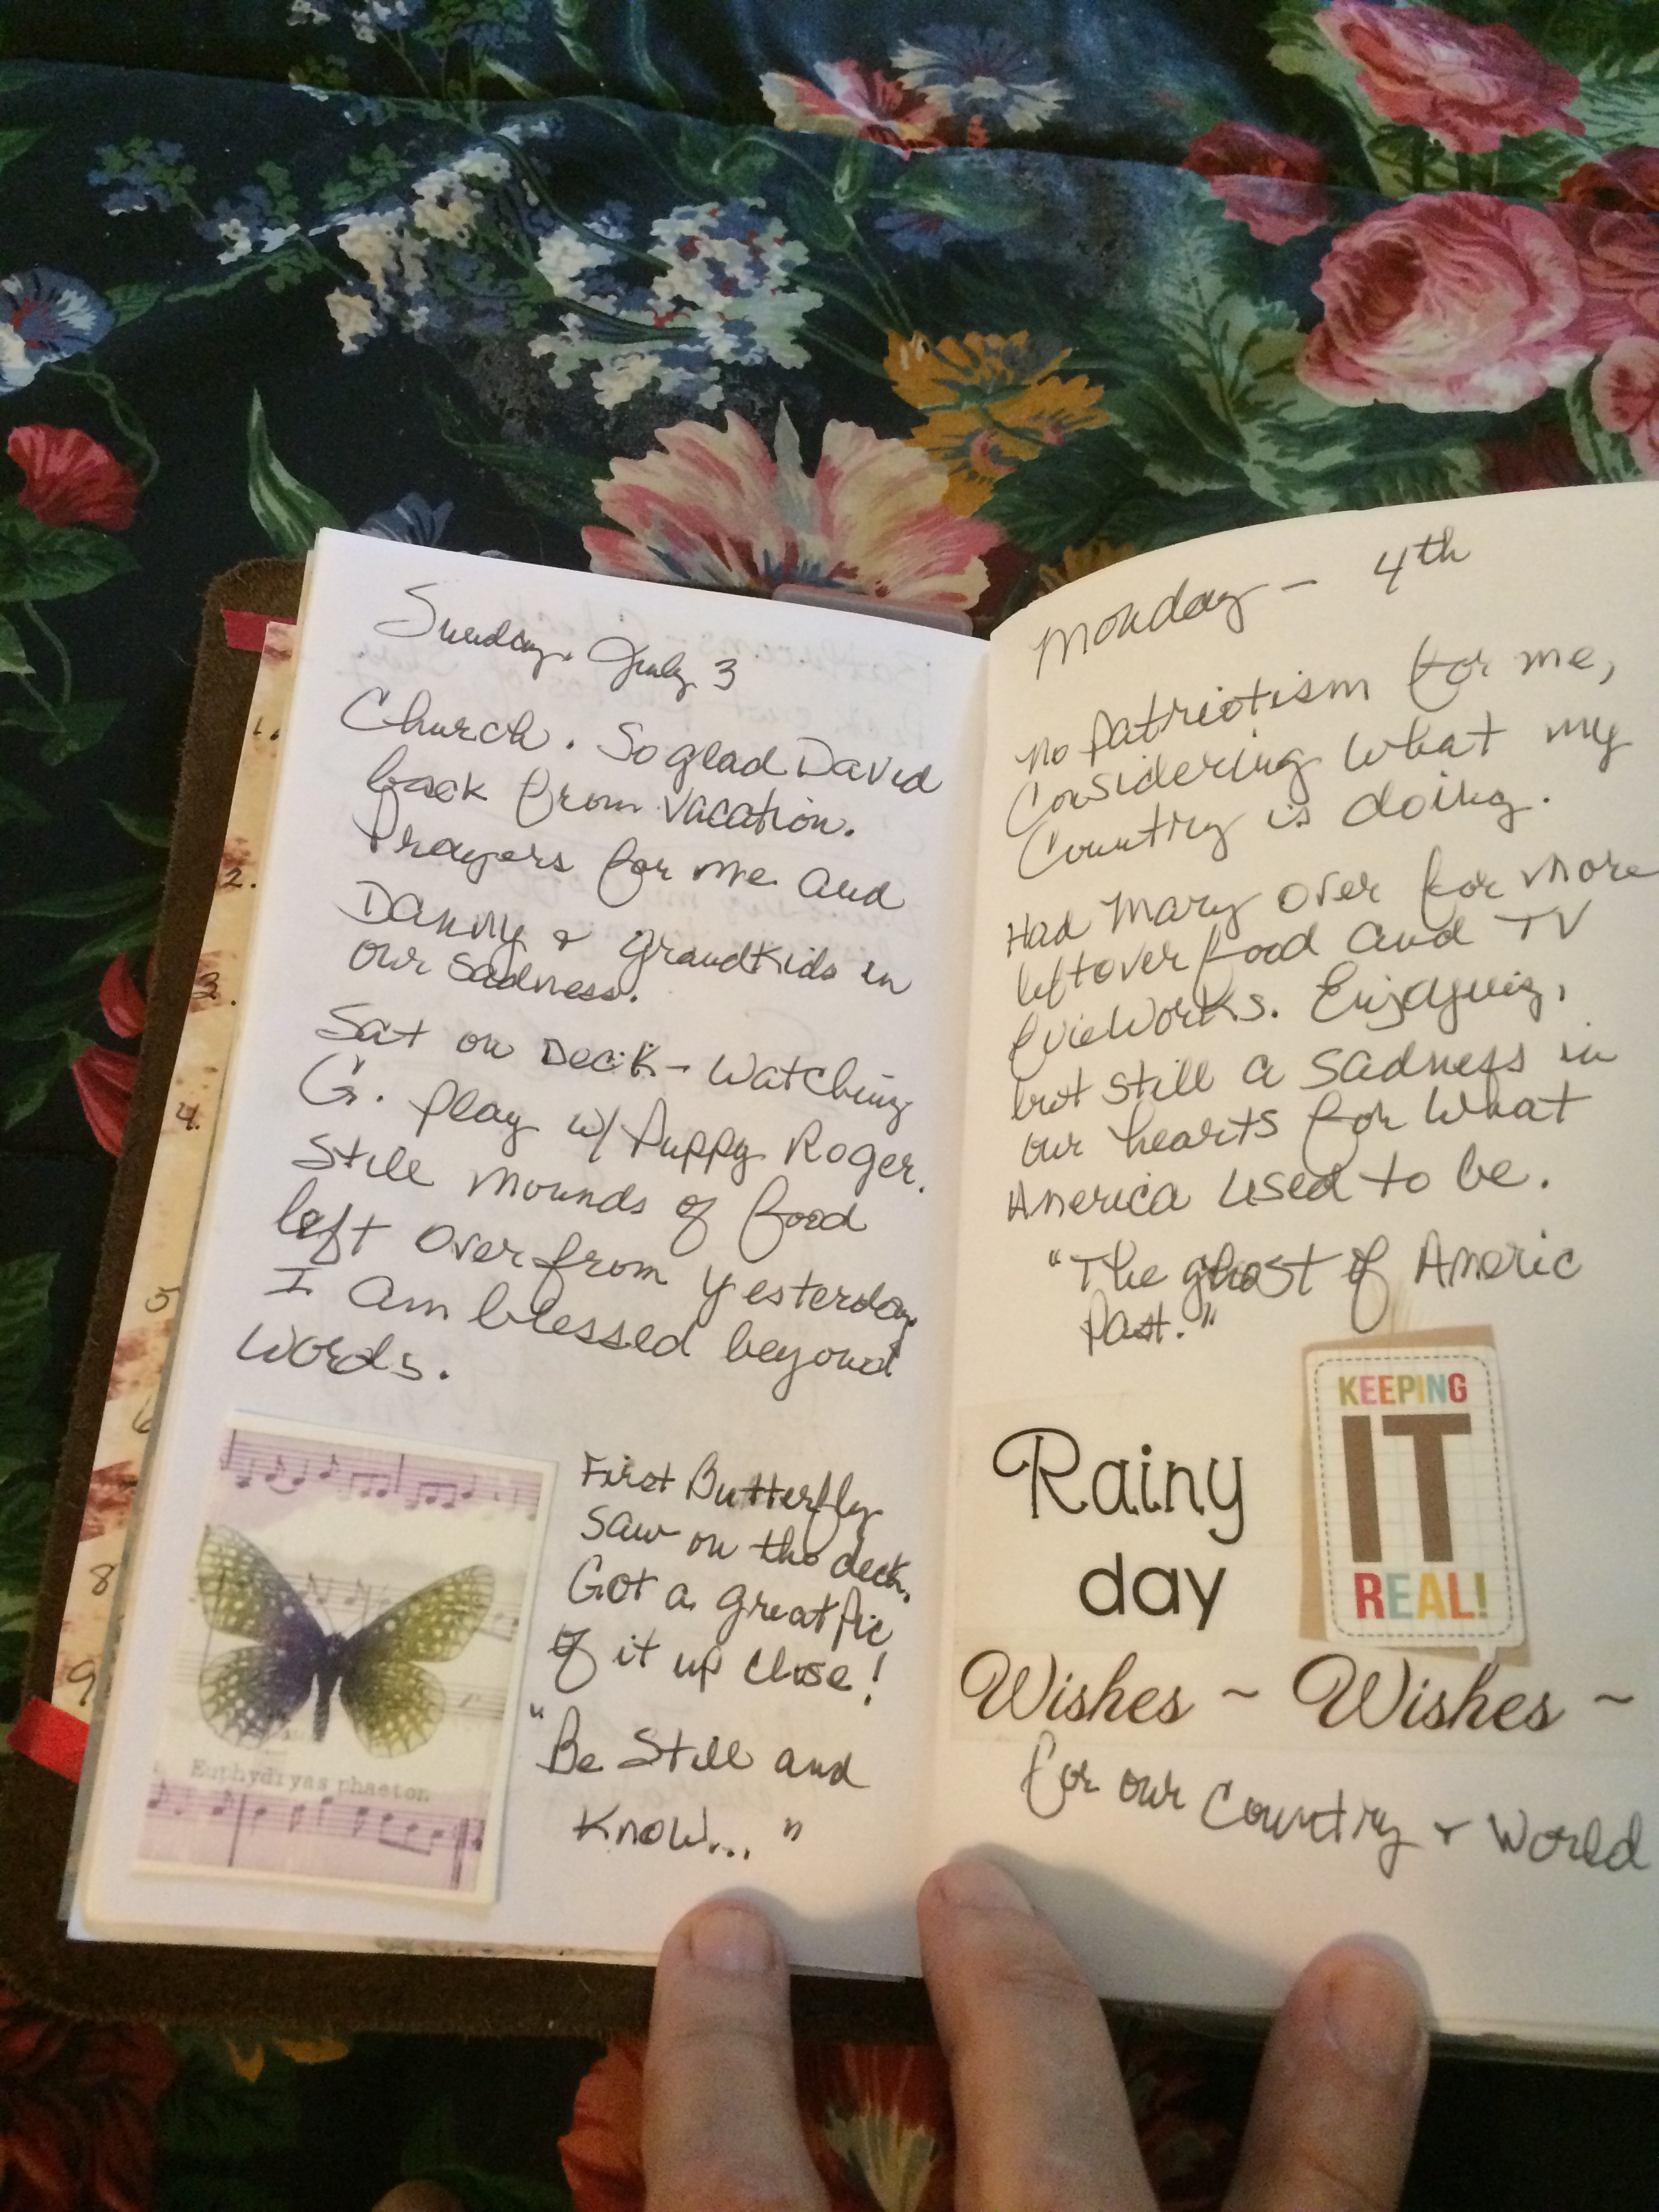 Sunday, July 3
Church. So glad David
back from vacation.
Prayers for me and
Danny & grandkids in
our sadness.
Sat on Deck - Watching
G. play w/ Puppy Roger.
Still mounds of food
left over from yesterday.
I am blessed beyond
words.
First Butterfly
saw on the deck.
Got a great pic
of it up close!
"Be Still and
Know... "
Euphydryas phaeton
1.
2.
3.
4.
5
6
8
9
Monday - 4th
No patriotism for me,
Considering what my
Country is doing.
Had Mary over for more
leftover food and TV
fireworks. Enjoying,
but still a sadness in
our hearts for what
America used to be.
"The ghost of Americ
Past."
KEEPING
IT
REAL!
Rainy
day
Wishes ~ Wishes ~
for our Country & World